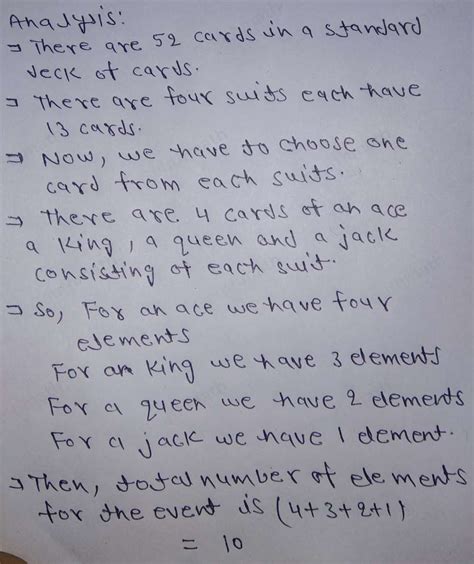 Analysis:
⇒ There are 52 cards in a standard
deck of cards.
⇒ There are four suits each have
13 cards.
⇒ Now, we have to choose one
card from each suits.
⇒ there are 4 cards of an ace
a king, a queen and a jack
consisting of each suit.
⇒ So, For an ace we have four
elements
For an king we have 3 elements
For a queen we have 2 elements
For a jack we have 1 element.
⇒ Then, total number of elements
for the event is (4+3+2+1)
= 10